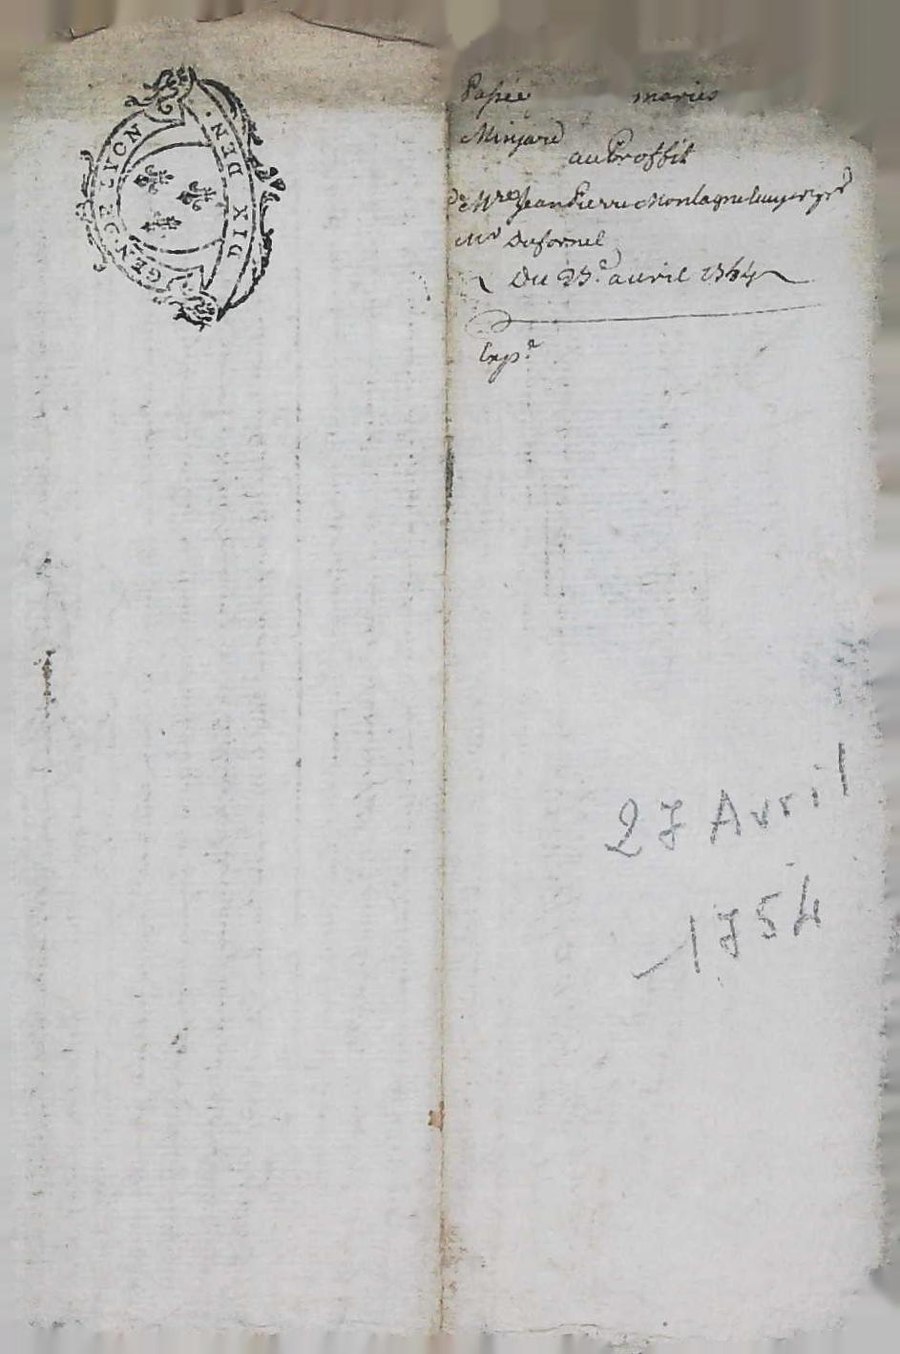 GEN. DE LYON
DIX DEN.
Passée maries
Minjard
au Proffit
de Mre Jean Pierre Montagne
Mr Dufornel
Du 27e avril 1754
Exp.e
27 Avril
1754